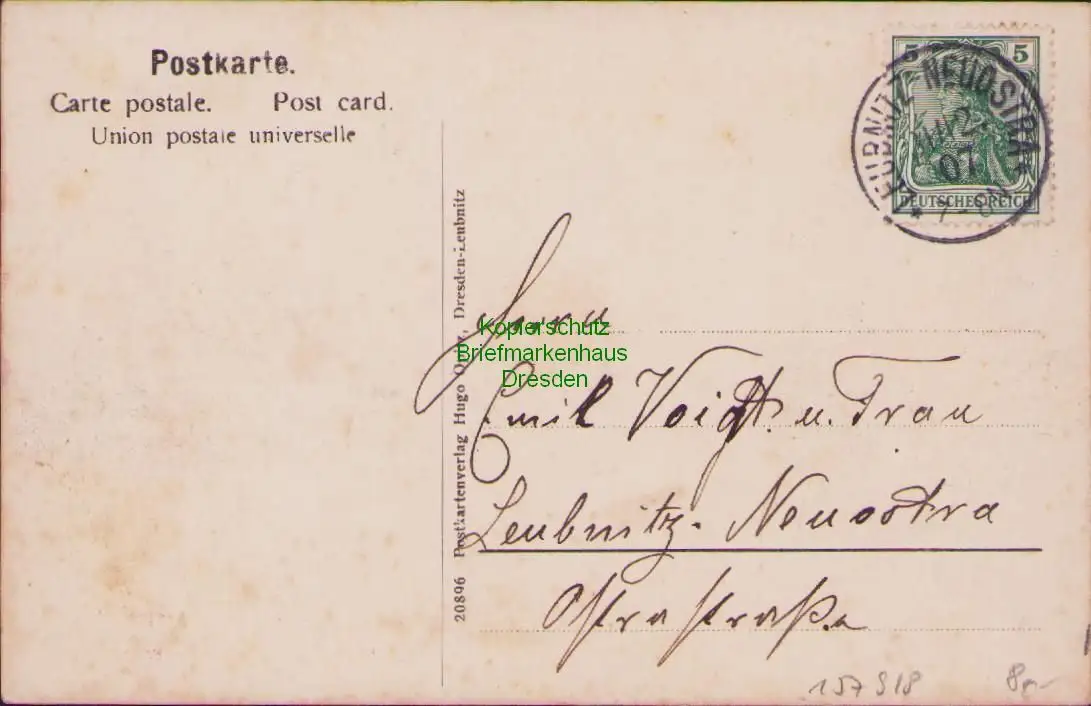 Postkarte.
Carte postale. Post card.
Union postale universelle
5 5
DEUTSCHES REICH
LEUBNITZ-NEUOSTRA
07
7-8N
20896 Postkartenverlag Hugo Dresden-Leubnitz
Kopierschutz
Briefmarkenhaus
Dresden
Herrn
Emil Voigt u. Frau
Leubnitz-Neuostra
Ostrastraße
157918
8,-